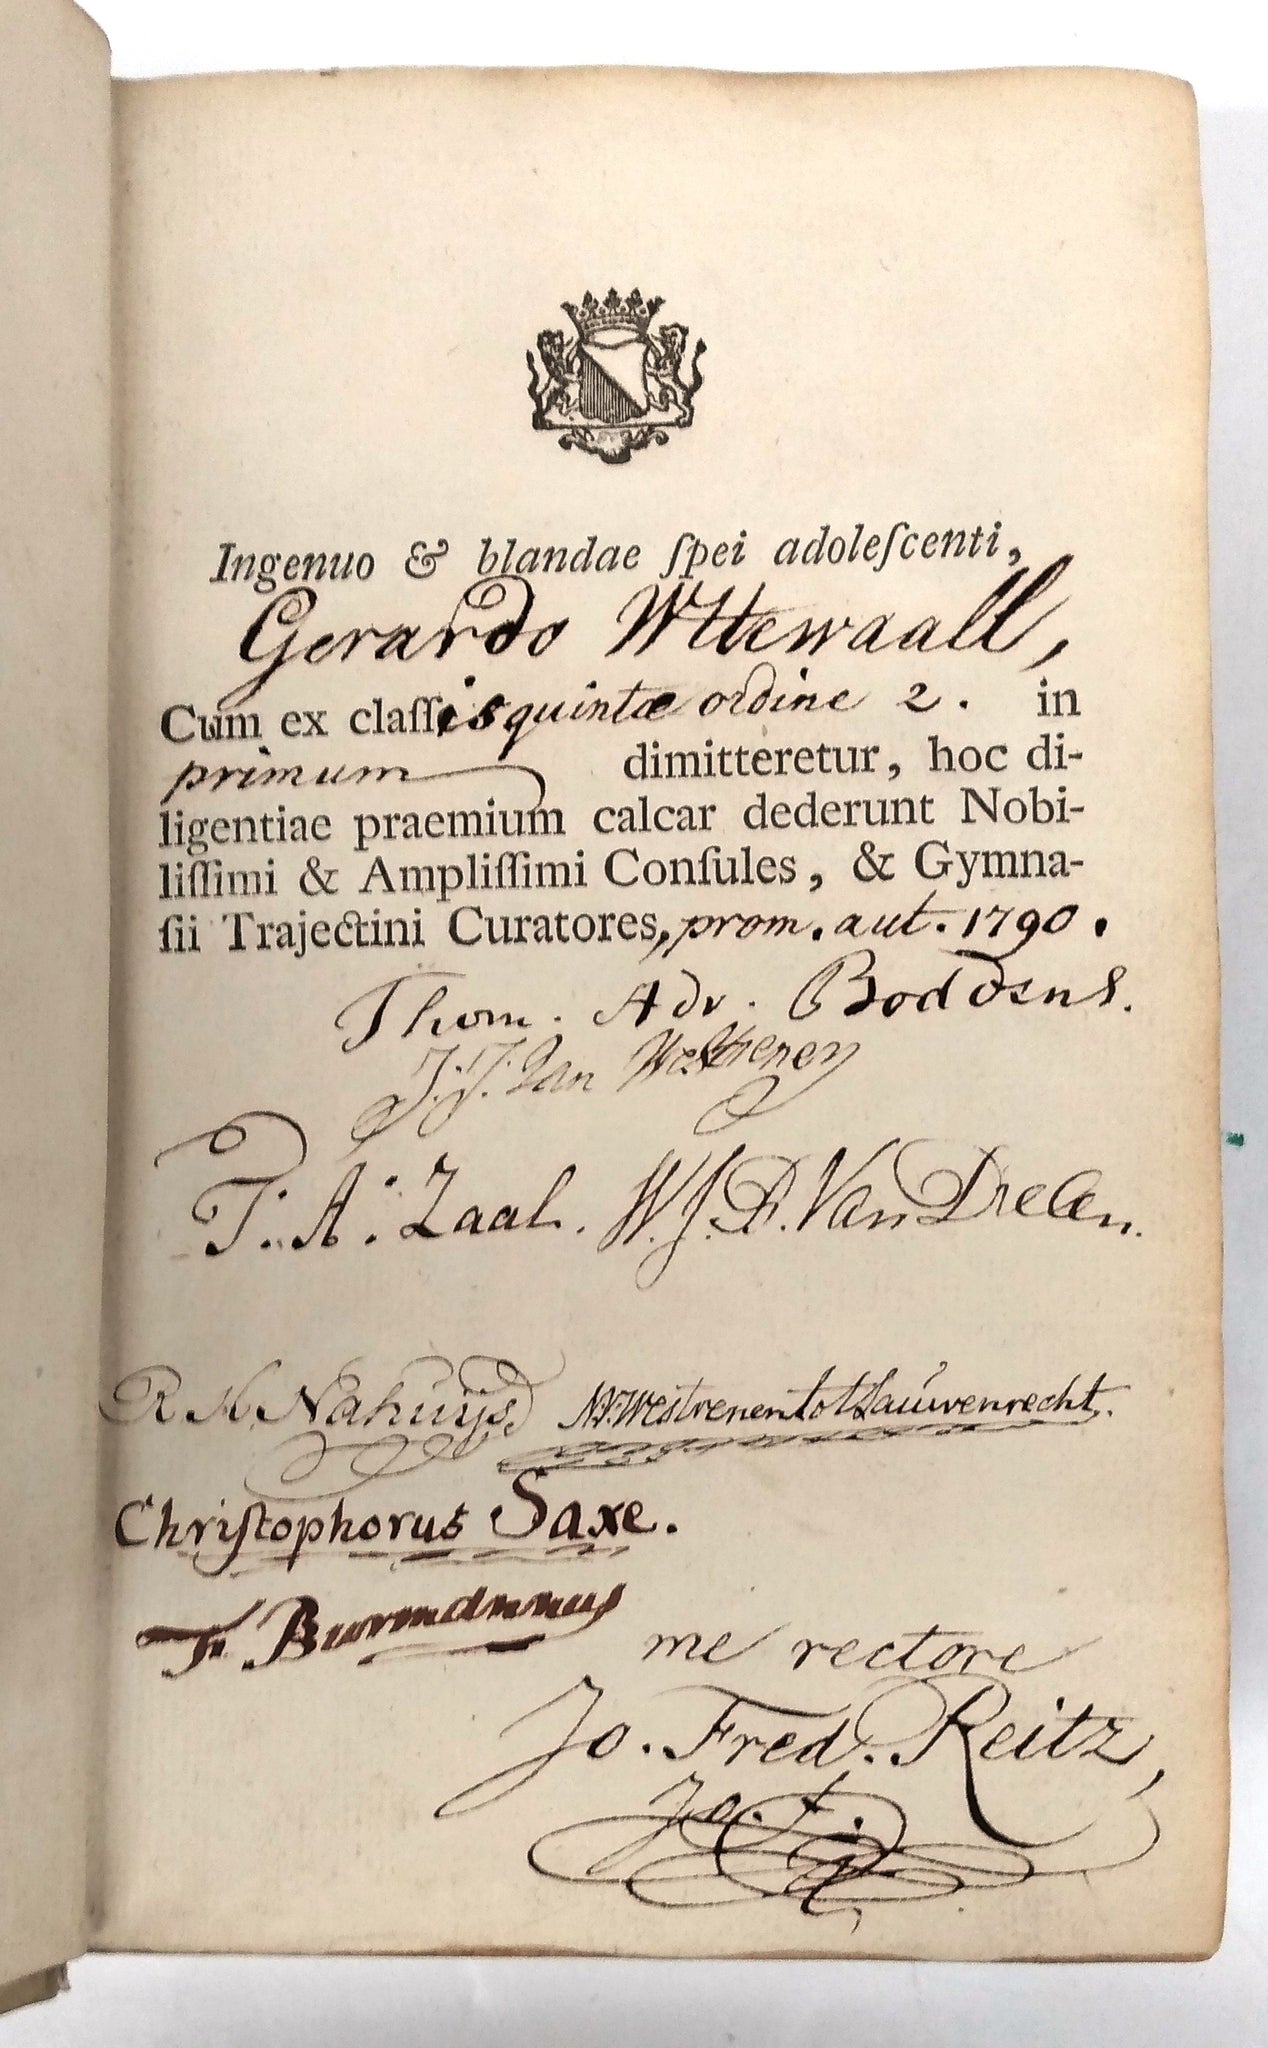 Ingenuo & blandae ſpei adoleſcenti,
Gerardo Wttewaall,
Cum ex claſſis quintæ ordine 2. in
primum dimitteretur, hoc di-
ligentiae praemium calcar dederunt Nobi-
liſſimi & Ampliſſimi Conſules, & Gymna-
ſii Trajectini Curatores, prom. aut. 1790.
Thom. Adr. Boddens.
J. J. Van Westrenen
T. A. Zaal. W. J. D. Van Dielen.
R H Nahuijs N.J. Westrenen tot Lauwenrecht.
Chriſtophorus Saxe.
Fr. Burmannus
me rectore
Jo. Fred. Reitz,
Jo. f.